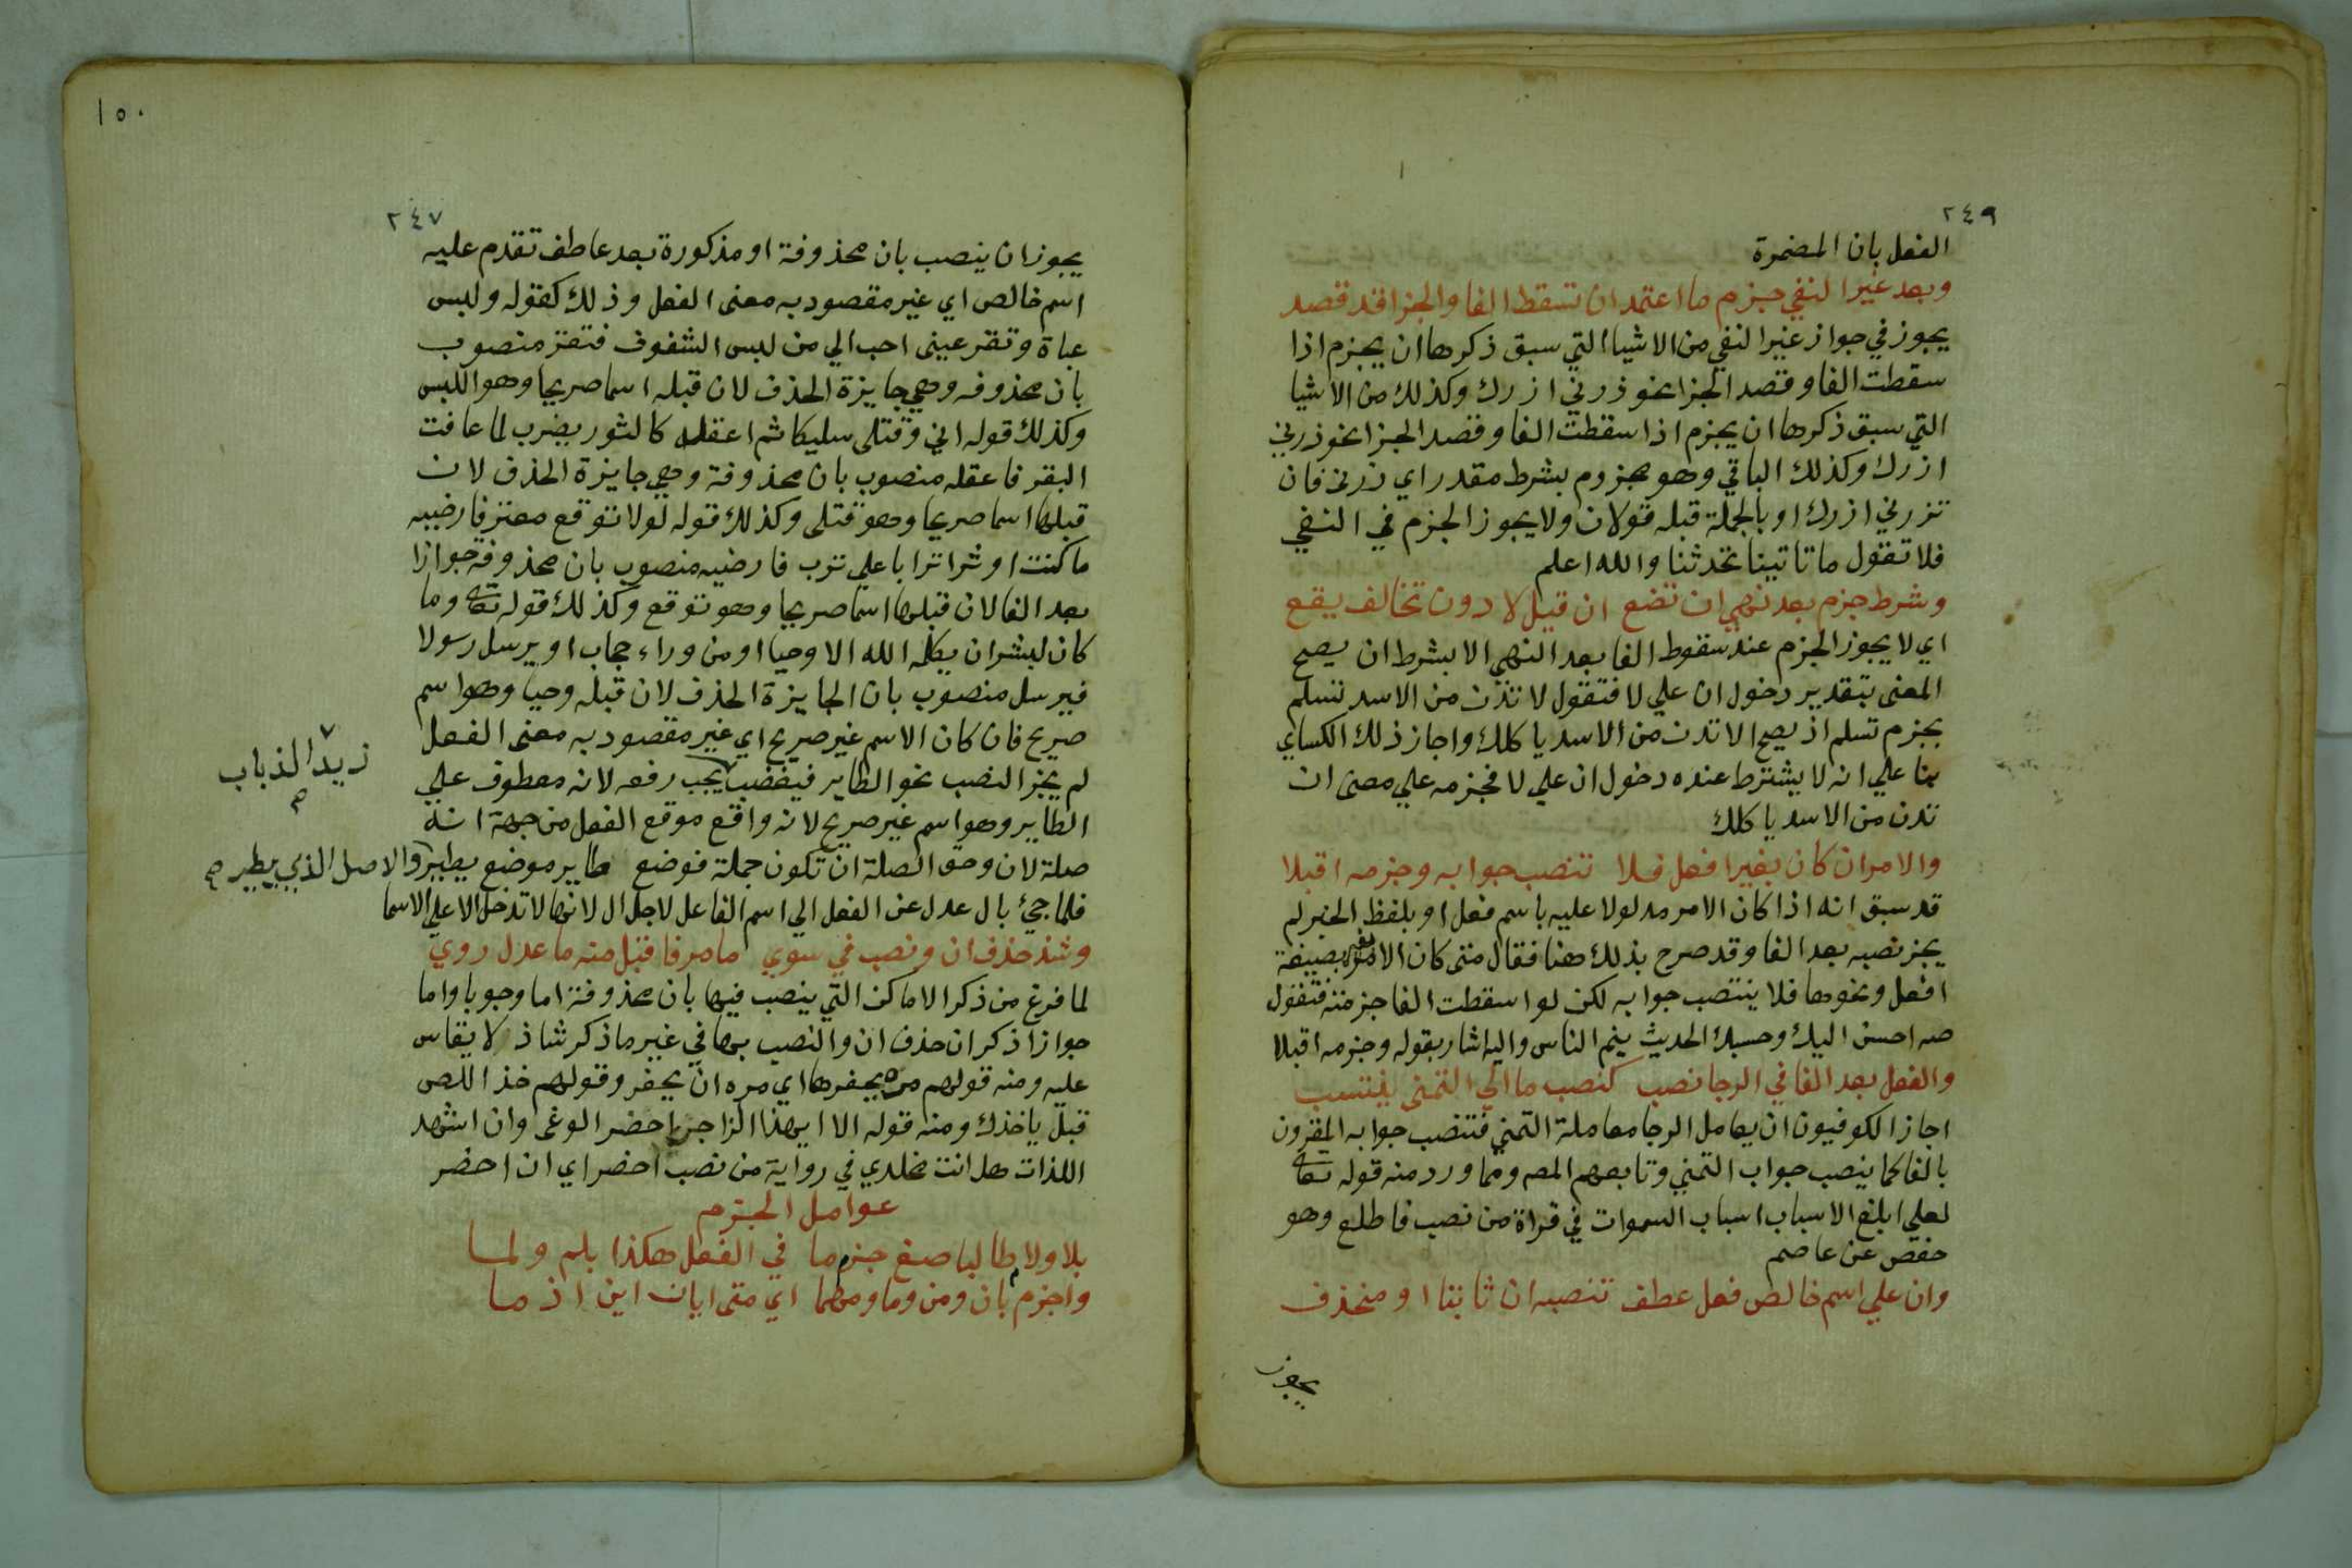 ٢٤٩
الفعل بان المضمرة
وبعد غير النفي جزم ما اعتمد ان تسقط الفا والجزا قد قصد
يجوز في جواز غير النفي من الاشيا التي سبق ذكرها ان يجزم اذا
سقطت الفا وقصد الجزا نحو زرني ازرك وكذلك من الاشيا
التي سبق ذكرها ان يجزم اذا سقطت الفا وقصد الجزا نحو زرني
ازرك وكذلك الباقي وهو مجزوم بشرط مقدر اي زرني فان
تزرني ازرك او بالجملة قبله قولان ولا يجوز الجزم في النفي
فلا تقول ما تاتينا تحدثنا والله اعلم
وشرط جزم بعد نهي ان تضع ان قبل لا دون تخالف يقع
اي لا يجوز الجزم عند سقوط الفا بعد النهي الا بشرط ان يصح
المعنى بتقدير دخول ان علي لا فتقول لا تدن من الاسد تسلم
بجزم تسلم اذ يصح الا تدن من الاسد ياكلك واجاز ذلك الكساي
بنا علي انه لا يشترط عنده دخول ان علي لا فجزمه علي معنى ان
تدن من الاسد ياكلك
والامر ان كان بغير افعل فلا تنصب جوابه وجزمه اقبلا
قد سبق انه اذا كان الامر مدلولا عليه باسم فعل او بلفظ الخبر لم
يجز نصبه بعد الفا وقد صرح بذلك هنا فقال متى كان الامر بغير صيغة
افعل ونحوها فلا ينتصب جوابه لكن لو اسقطت الفا جزمته فتقول
صه احسن اليك وحسبك الحديث ينم الناس واليه اشار بقوله وجزمه اقبلا
والفعل بعد الفا في الرجا نصب كنصب ما الي التمني ينتسب
اجاز الكوفيون ان يعامل الرجا معاملة التمني فتنصب جوابه المقرون
بالفا كما ينصب جواب التمني وتابعهم المصه ومما ورد منه قوله تعالى
لعلي ابلغ الاسباب اسباب السموات في قراة من نصب فاطلع وهو
حفص عن عاصم
وان علي اسم خالص فعل عطف تنصبه ان ثابتا او منحذف
يجوز
١٥٠
٢٤٧
يجوز ان ينصب بان محذوفة او مذكورة بعد عاطف تقدم عليه
اسم خالص اي غير مقصود به معنى الفعل وذلك كقوله ولبس
عباة وتقر عيني احب الي من لبس الشفوف فتقر منصوب
بان محذوفه وهي جايزة الحذف لان قبله اسما صريحا وهو اللبس
وكذلك قوله اني وقتلى سليكا ثم اعقله كالثور يضرب لما عافت
البقر فاعقله منصوب بان محذوفة وهي جايزة الحذف لان
قبلها اسما صريحا وهو قتلى وكذلك قوله لولا توقع معتر فارضيه
ما كنت اوثر اترابا علي ترب فارضيه منصوب بان محذوفة جوازا
بعد الفا لان قبلها اسما صريحا وهو توقع وكذلك قوله تعالى وما
كان لبشر ان يكلمه الله الا وحيا او من وراء حجاب او يرسل رسولا
فيرسل منصوب بان الجايزة الحذف لان قبله وحيا وهو اسم
صريح فان كان الاسم غير صريح اي غير مقصود به معنى الفعل
لم يجز النصب نحو الطاير فيغضب يجب رفعه لانه معطوف علي
زيد الذباب
صح
الطاير وهو اسم غير صريح لانه واقع موقع الفعل من جهة انه
صلة لان وحق الصلة ان تكون جملة فوضع طاير موضع يطير والاصل الذي يطير صح
فلما جئ بال عدل عن الفعل الي اسم الفاعل لاجل ال لانها لا تدخل الا علي الاسما
وشذ حذف ان ونصب في سوي ما مر فاقبل منه ما عدل روي
لما فرغ من ذكر الاماكن التي ينصب فيها بان محذوفة اما وجوبا واما
جوازا ذكر ان حذف ان والنصب بها في غير ما ذكر شاذ لا يقاس
عليه ومنه قولهم مره يحفرها اي مره ان يحفر وقولهم خذ اللص
قبل ياخذك ومنه قوله الا ايهذا الزاجري احضر الوغى وان اشهد
اللذات هل انت مخلدي في رواية من نصب احضر اي ان احضر
عوامل الجزم
بلا ولام طالبا ضع جزما في الفعل هكذا بلم ولما
واجزم بان ومن وما ومهما اي متى ايان اين اذ ما